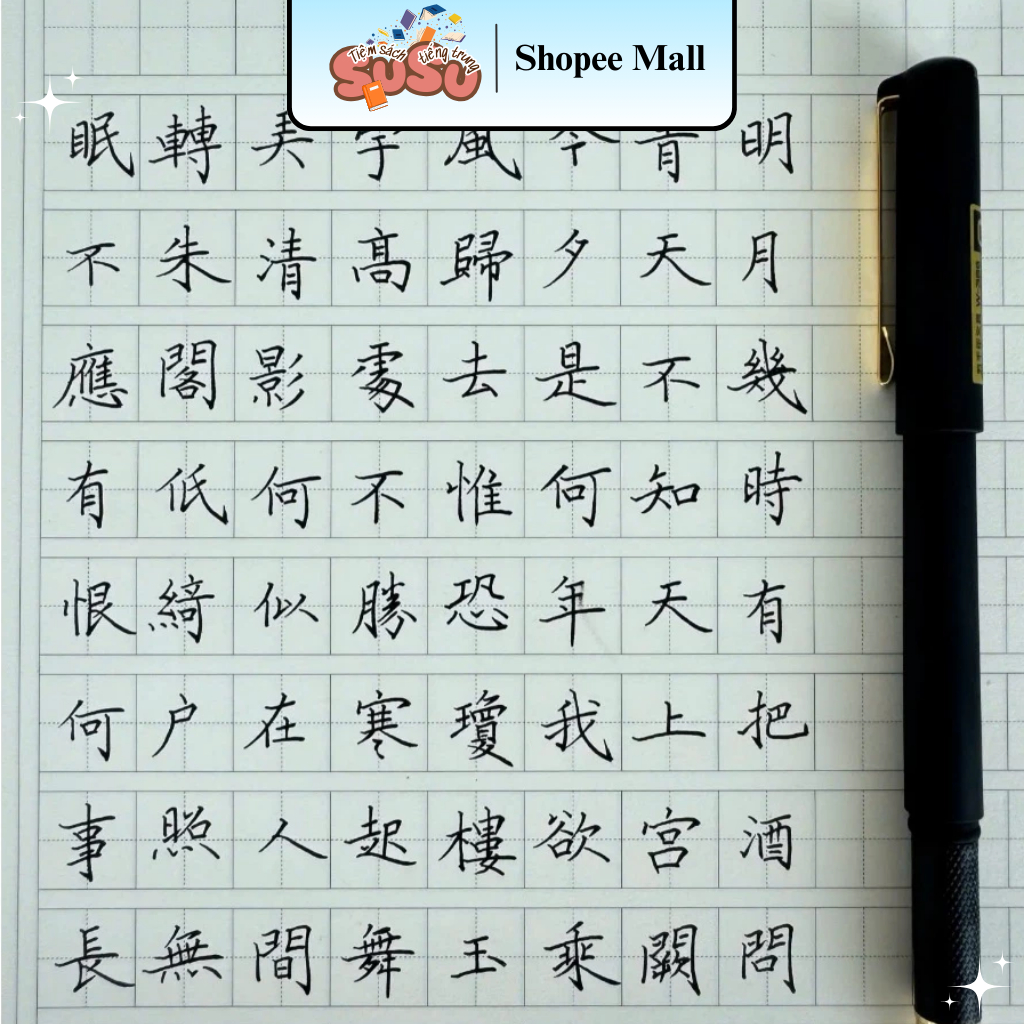 Tiệm sách tiếng trung
SuSu
Shopee Mall
明月幾時有把酒問
青天不知天上宮闕
今夕是何年我欲乘
風歸去惟恐瓊樓玉
宇高處不勝寒起舞
弄清影何似在人間
轉朱閣低綺户照無
眠不應有恨何事長